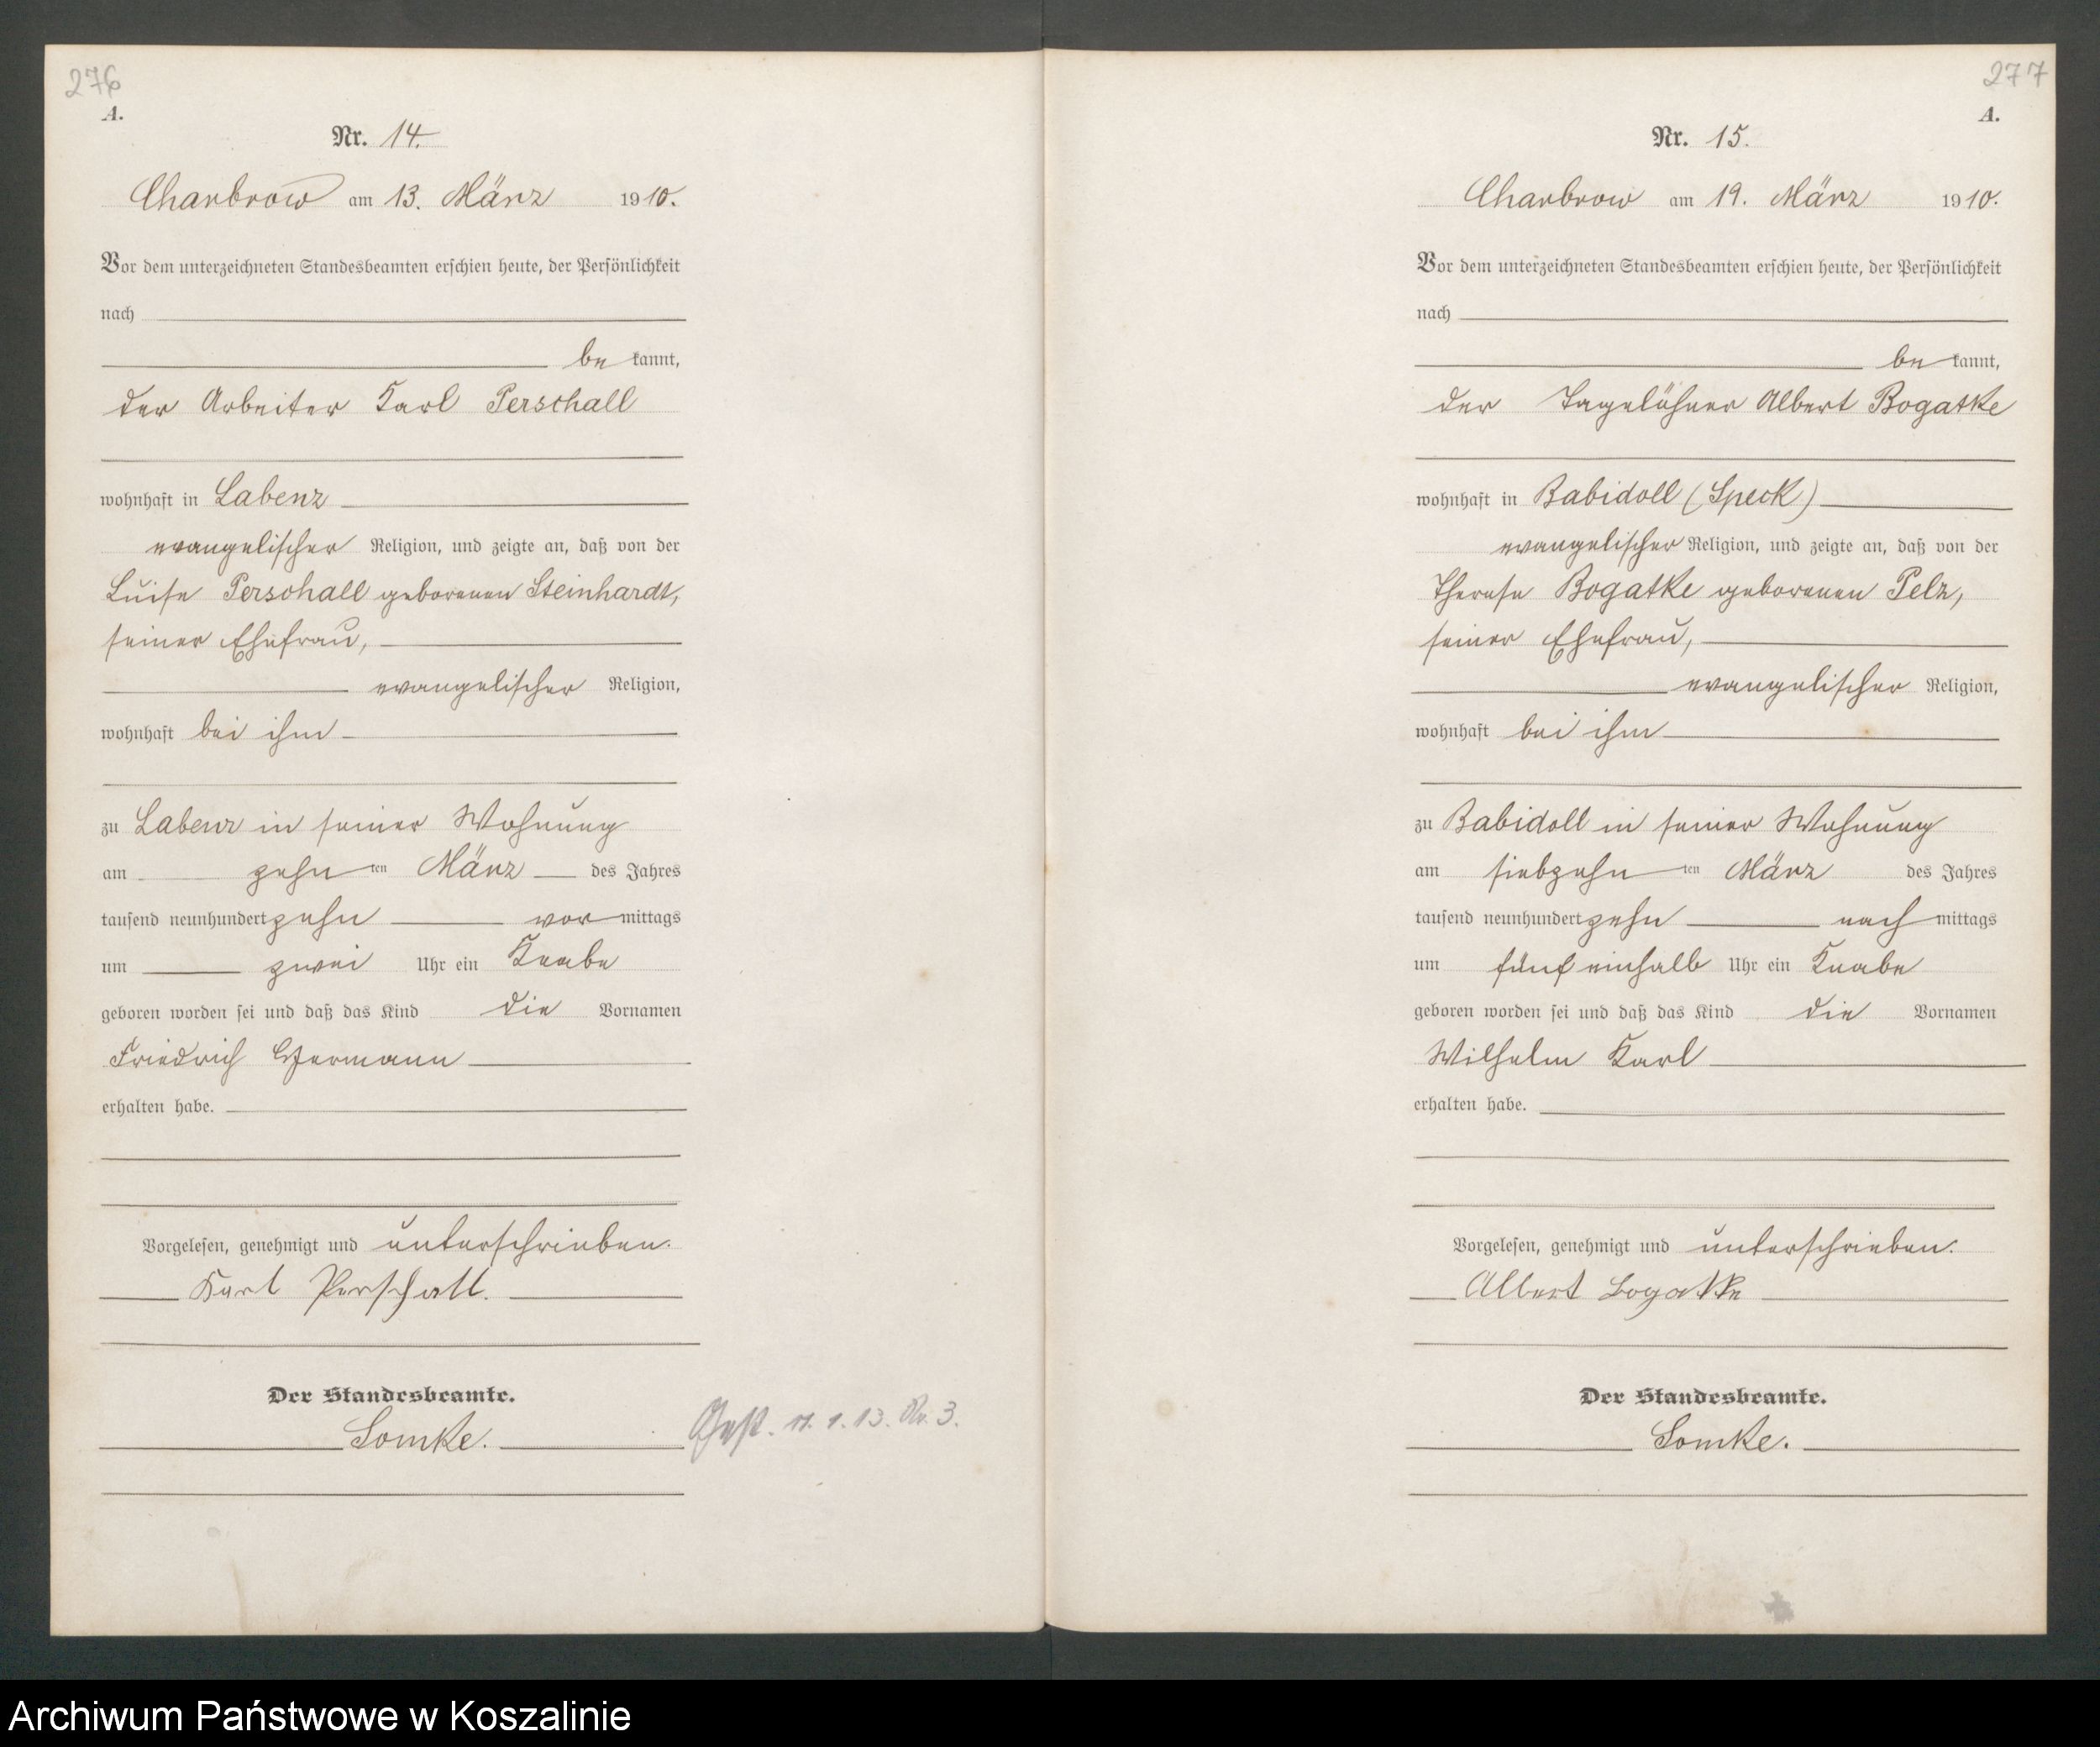 276
A.
Nr. 14.
Charbrow am 13. März 1910.
Vor dem unterzeichneten Standesbeamten erschien heute, der Persönlichkeit
nach
be kannt,
der Arbeiter Karl Perschall
wohnhaft in Labenz
evangelischer Religion, und zeigte an, daß von der
Luise Perschall geborenen Steinhardt,
seiner Ehefrau,
evangelischer Religion,
wohnhaft bei ihm
zu Labenz in seiner Wohnung
am zehn ten März des Jahres
tausend neunhundert zehn vor mittags
um zwei Uhr ein Knabe
geboren worden sei und daß das Kind die Vornamen
Friedrich Hermann
erhalten habe.
Vorgelesen, genehmigt und unterschrieben.
Karl Perschall.
Der Standesbeamte.
Lomke.
Gest. 11. 1. 13. Nr. 3.
277
A.
Nr. 15.
Charbrow am 19. März 1910.
Vor dem unterzeichneten Standesbeamten erschien heute, der Persönlichkeit
nach
be kannt,
der Tagelöhner Albert Bogatke
wohnhaft in Babidoll (Speck)
evangelischer Religion, und zeigte an, daß von der
Therese Bogatke geborenen Pelz,
seiner Ehefrau,
evangelischer Religion,
wohnhaft bei ihm
zu Babidoll in seiner Wohnung
am siebzehn ten März des Jahres
tausend neunhundert zehn nach mittags
um fünf einhalb Uhr ein Knabe
geboren worden sei und daß das Kind die Vornamen
Wilhelm Karl
erhalten habe.
Vorgelesen, genehmigt und unterschrieben.
Albert Bogatke
Der Standesbeamte.
Lomke.
Archiwum Państwowe w Koszalinie